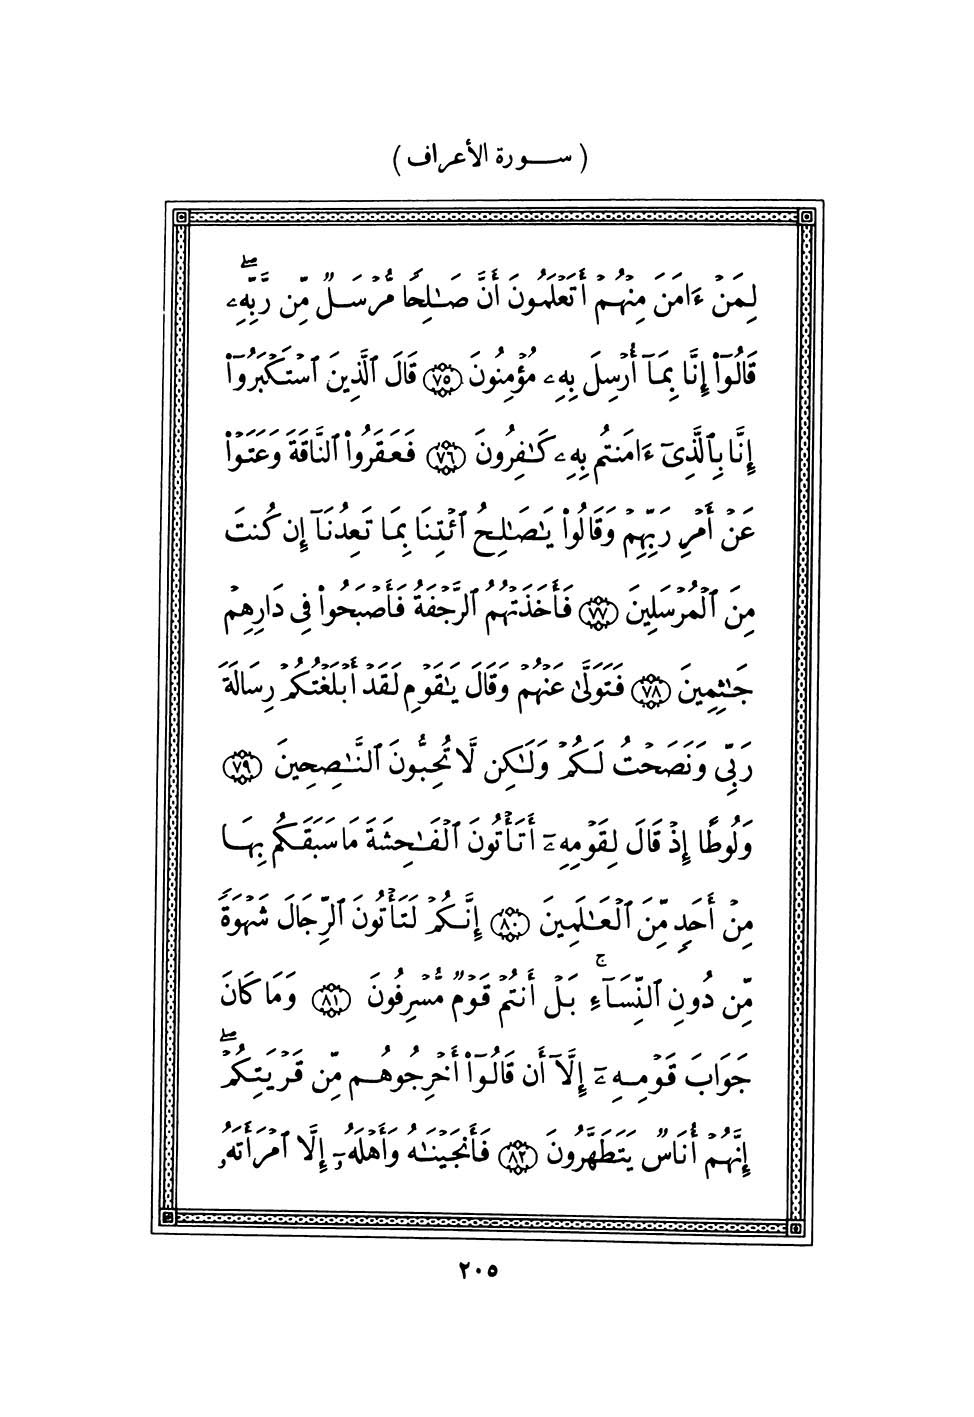 ( ســـورة الأعراف )
لِمَنْ ءَامَنَ مِنْهُمْ أَتَعْلَمُونَ أَنَّ صَـٰلِحًا مُّرْسَلٌ مِّن رَّبِّهِۦۖ
قَالُوٓا۟ إِنَّا بِمَآ أُرْسِلَ بِهِۦ مُؤْمِنُونَ ٧٥ قَالَ ٱلَّذِينَ ٱسْتَكْبَرُوٓا۟
إِنَّا بِٱلَّذِىٓ ءَامَنتُم بِهِۦ كَـٰفِرُونَ ٧٦ فَعَقَرُوا۟ ٱلنَّاقَةَ وَعَتَوْا۟
عَنْ أَمْرِ رَبِّهِمْ وَقَالُوا۟ يَـٰصَـٰلِحُ ٱئْتِنَا بِمَا تَعِدُنَآ إِن كُنتَ
مِنَ ٱلْمُرْسَلِينَ ٧٧ فَأَخَذَتْهُمُ ٱلرَّجْفَةُ فَأَصْبَحُوا۟ فِى دَارِهِمْ
جَـٰثِمِينَ ٧٨ فَتَوَلَّىٰ عَنْهُمْ وَقَالَ يَـٰقَوْمِ لَقَدْ أَبْلَغْتُكُمْ رِسَالَةَ
رَبِّى وَنَصَحْتُ لَكُمْ وَلَـٰكِن لَّا تُحِبُّونَ ٱلنَّـٰصِحِينَ ٧٩
وَلُوطًا إِذْ قَالَ لِقَوْمِهِۦٓ أَتَأْتُونَ ٱلْفَـٰحِشَةَ مَا سَبَقَكُم بِهَا
مِنْ أَحَدٍ مِّنَ ٱلْعَـٰلَمِينَ ٨٠ إِنَّكُمْ لَتَأْتُونَ ٱلرِّجَالَ شَهْوَةً
مِّن دُونِ ٱلنِّسَآءِۚ بَلْ أَنتُمْ قَوْمٌ مُّسْرِفُونَ ٨١ وَمَا كَانَ
جَوَابَ قَوْمِهِۦٓ إِلَّآ أَن قَالُوٓا۟ أَخْرِجُوهُم مِّن قَرْيَتِكُمْۖ
إِنَّهُمْ أُنَاسٌ يَتَطَهَّرُونَ ٨٢ فَأَنجَيْنَـٰهُ وَأَهْلَهُۥٓ إِلَّا ٱمْرَأَتَهُۥ
٢٠٥